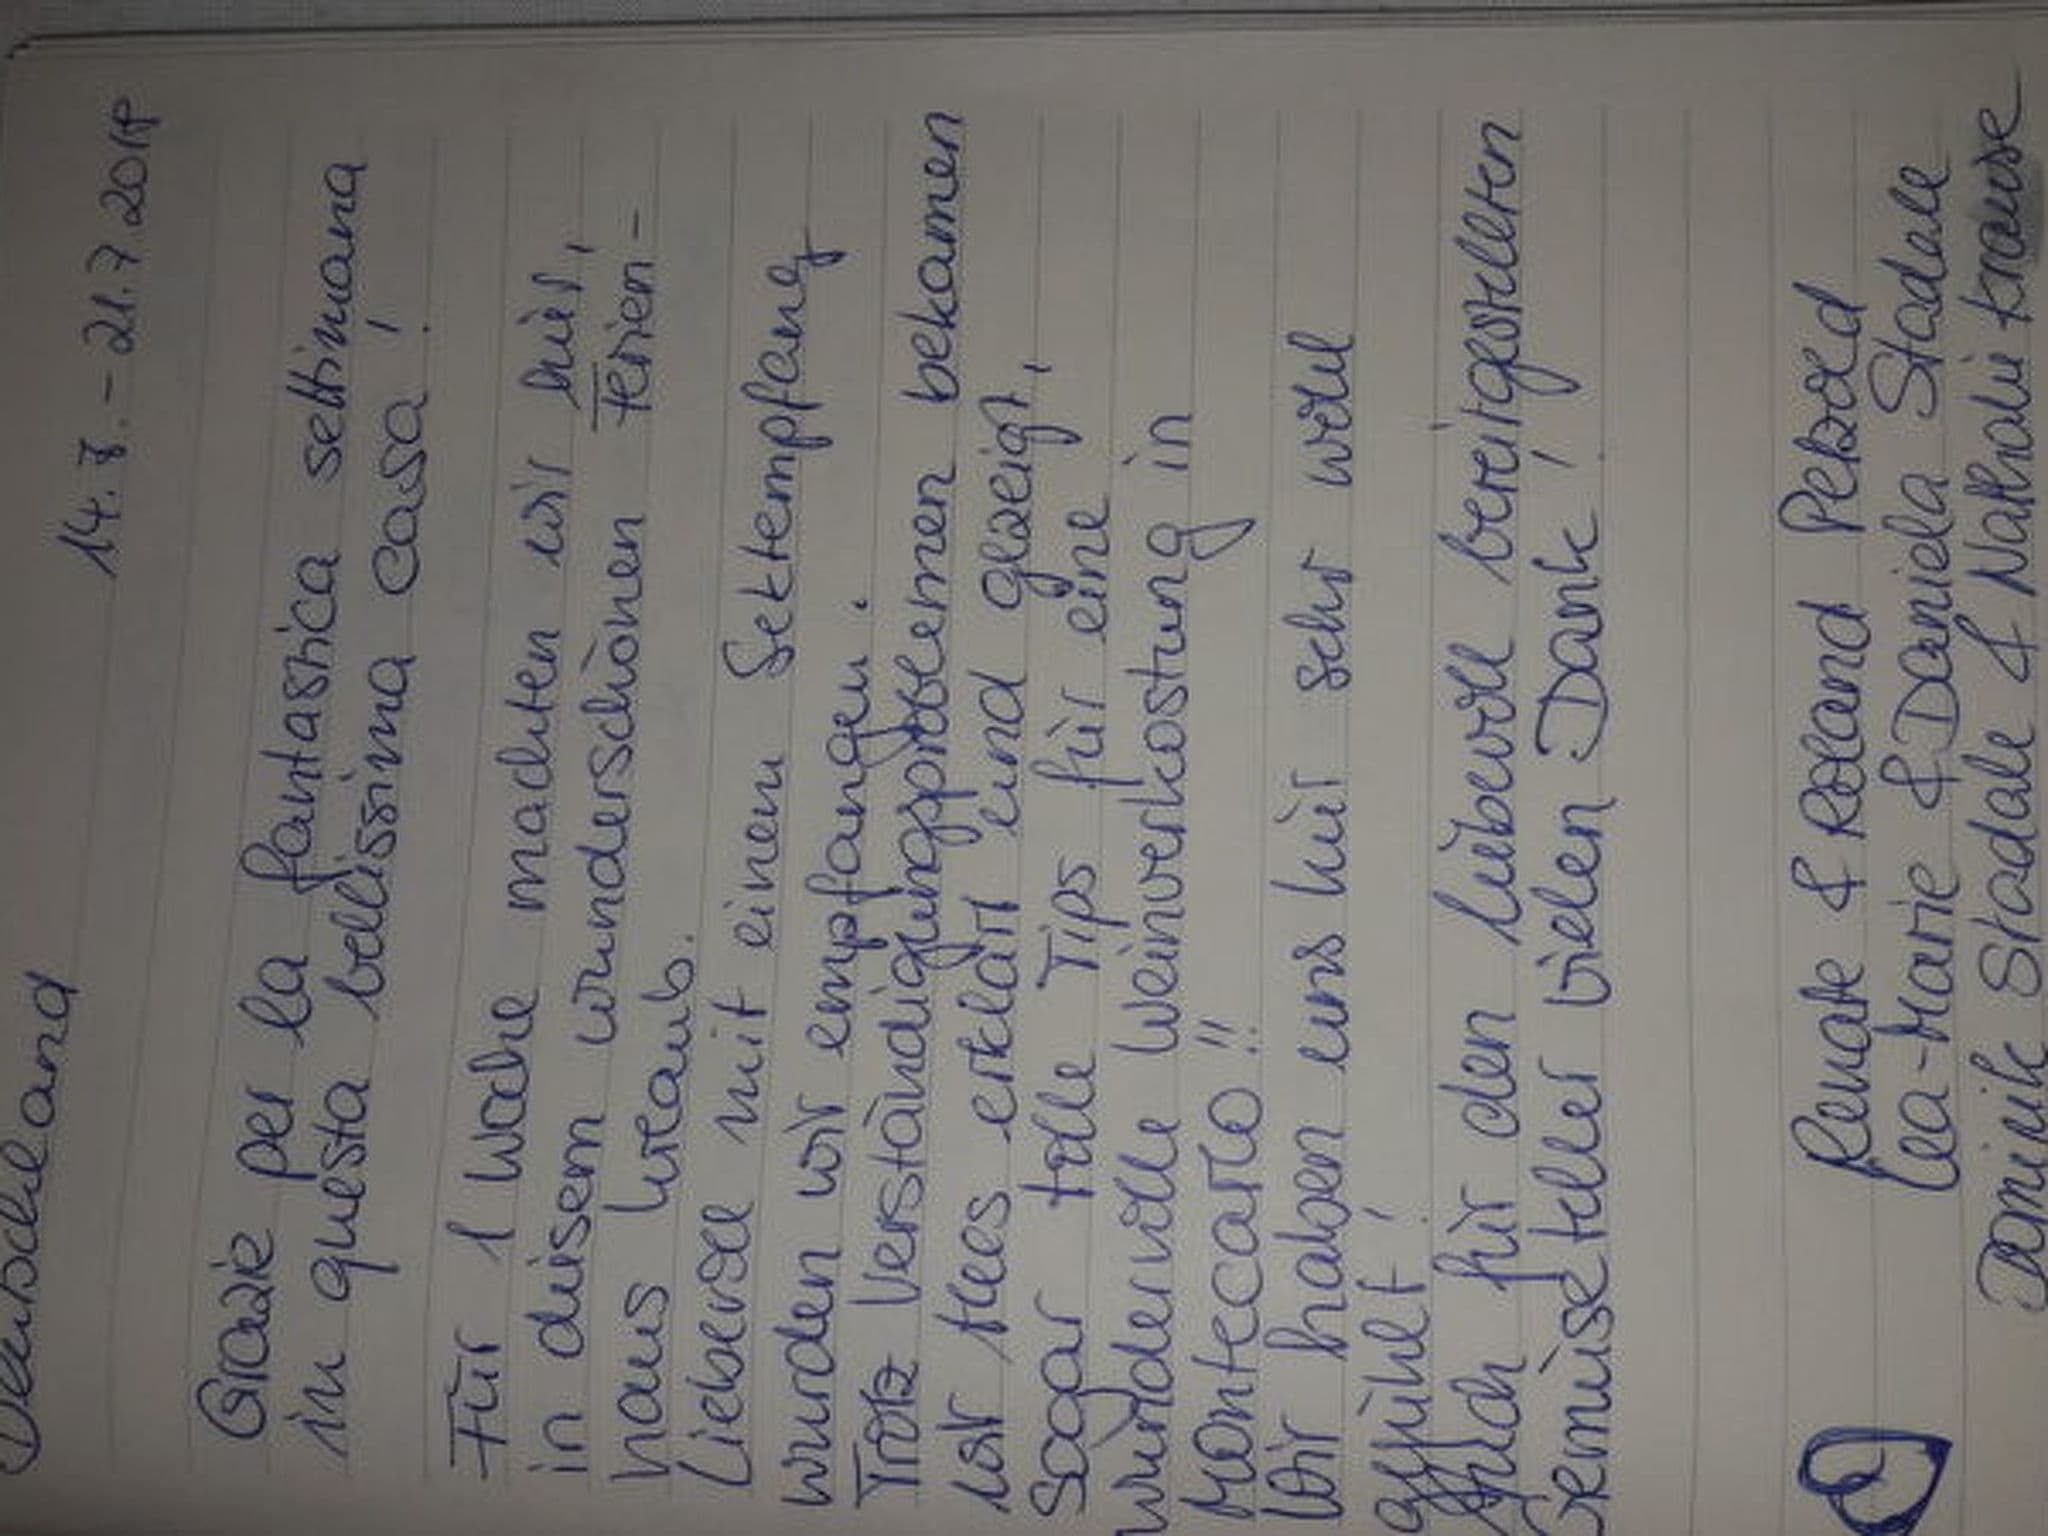 Deutschland
14.7.-21.7.2019
Grazie per la fantastica settimana
in questa bellissima casa!
Für 1 Woche machten wir hier,
in diesem wunderschönen Ferien-
haus Urlaub.
Liebevoll mit einem Sektempfang
wurden wir empfangen.
Trotz Verständigungsproblemen bekamen
wir alles erklärt und gezeigt,
sogar tolle Tips für eine
wundervolle Weinverkostung in
Montecarlo!!
Wir haben uns hier sehr wohl
gefühlt!
Auch für den liebevoll bereitgestellten
Gemüseteller vielen Dank!
Renate & Roland Petzold
Lea-Marie & Daniela Stadale
Dominik Stadale & Nathalie Krause